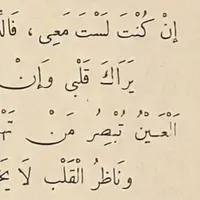 إِنْ كُنْتَ لَسْتَ مَعِي ،
يَرَاكَ قَلْبِي وَإِنْ
اَلْعَيْنُ تُبْصِرُ مَنْ
وَنَاظِرُ الْقَلْبِ لَا